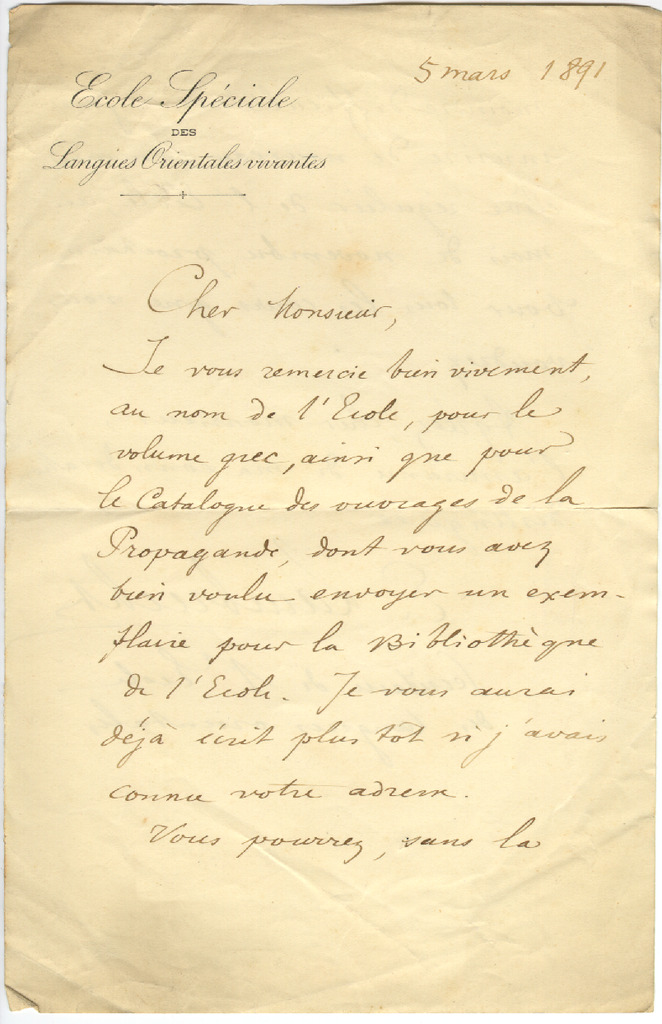 5 mars 1891
Ecole Spéciale
DES
Langues Orientales vivantes
Cher Monsieur,
Je vous remercie bien vivement,
au nom de l'Ecole, pour le
volume grec, ainsi que pour
le Catalogue des ouvrages de la
Propagande, dont vous avez
bien voulu envoyer un exem-
plaire pour la Bibliothèque
de l'Ecole. Je vous aurai
déjà écrit plus tôt si j'avais
connu votre adresse.
Vous pourrez, sans la